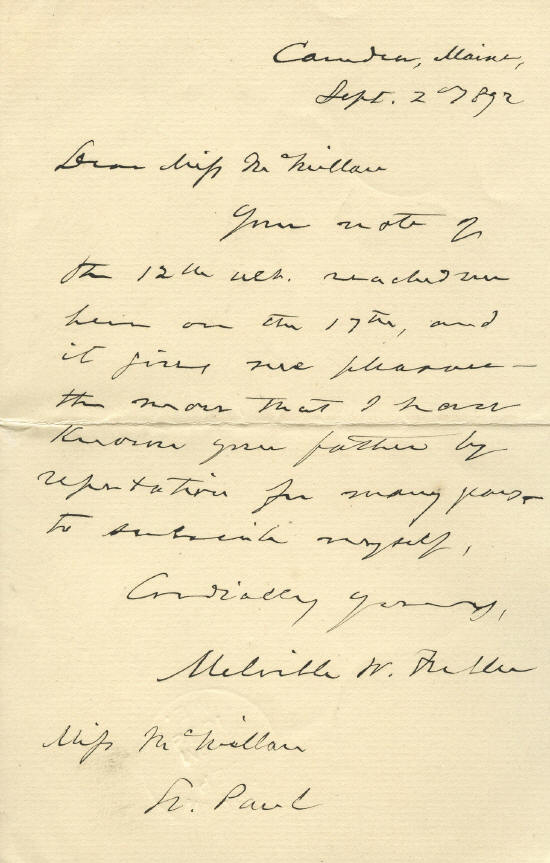 Camden, Maine,
Sept. 2d 1892
Dear Miss McMillan
Your note of
the 12th ult. reached me
here on the 17th, and
it gives me pleasure—
the more that I have
known your father by
reputation for many years—
to subscribe myself,
Cordially yours,
Melville W. Fuller
Miss McMillan
St. Paul